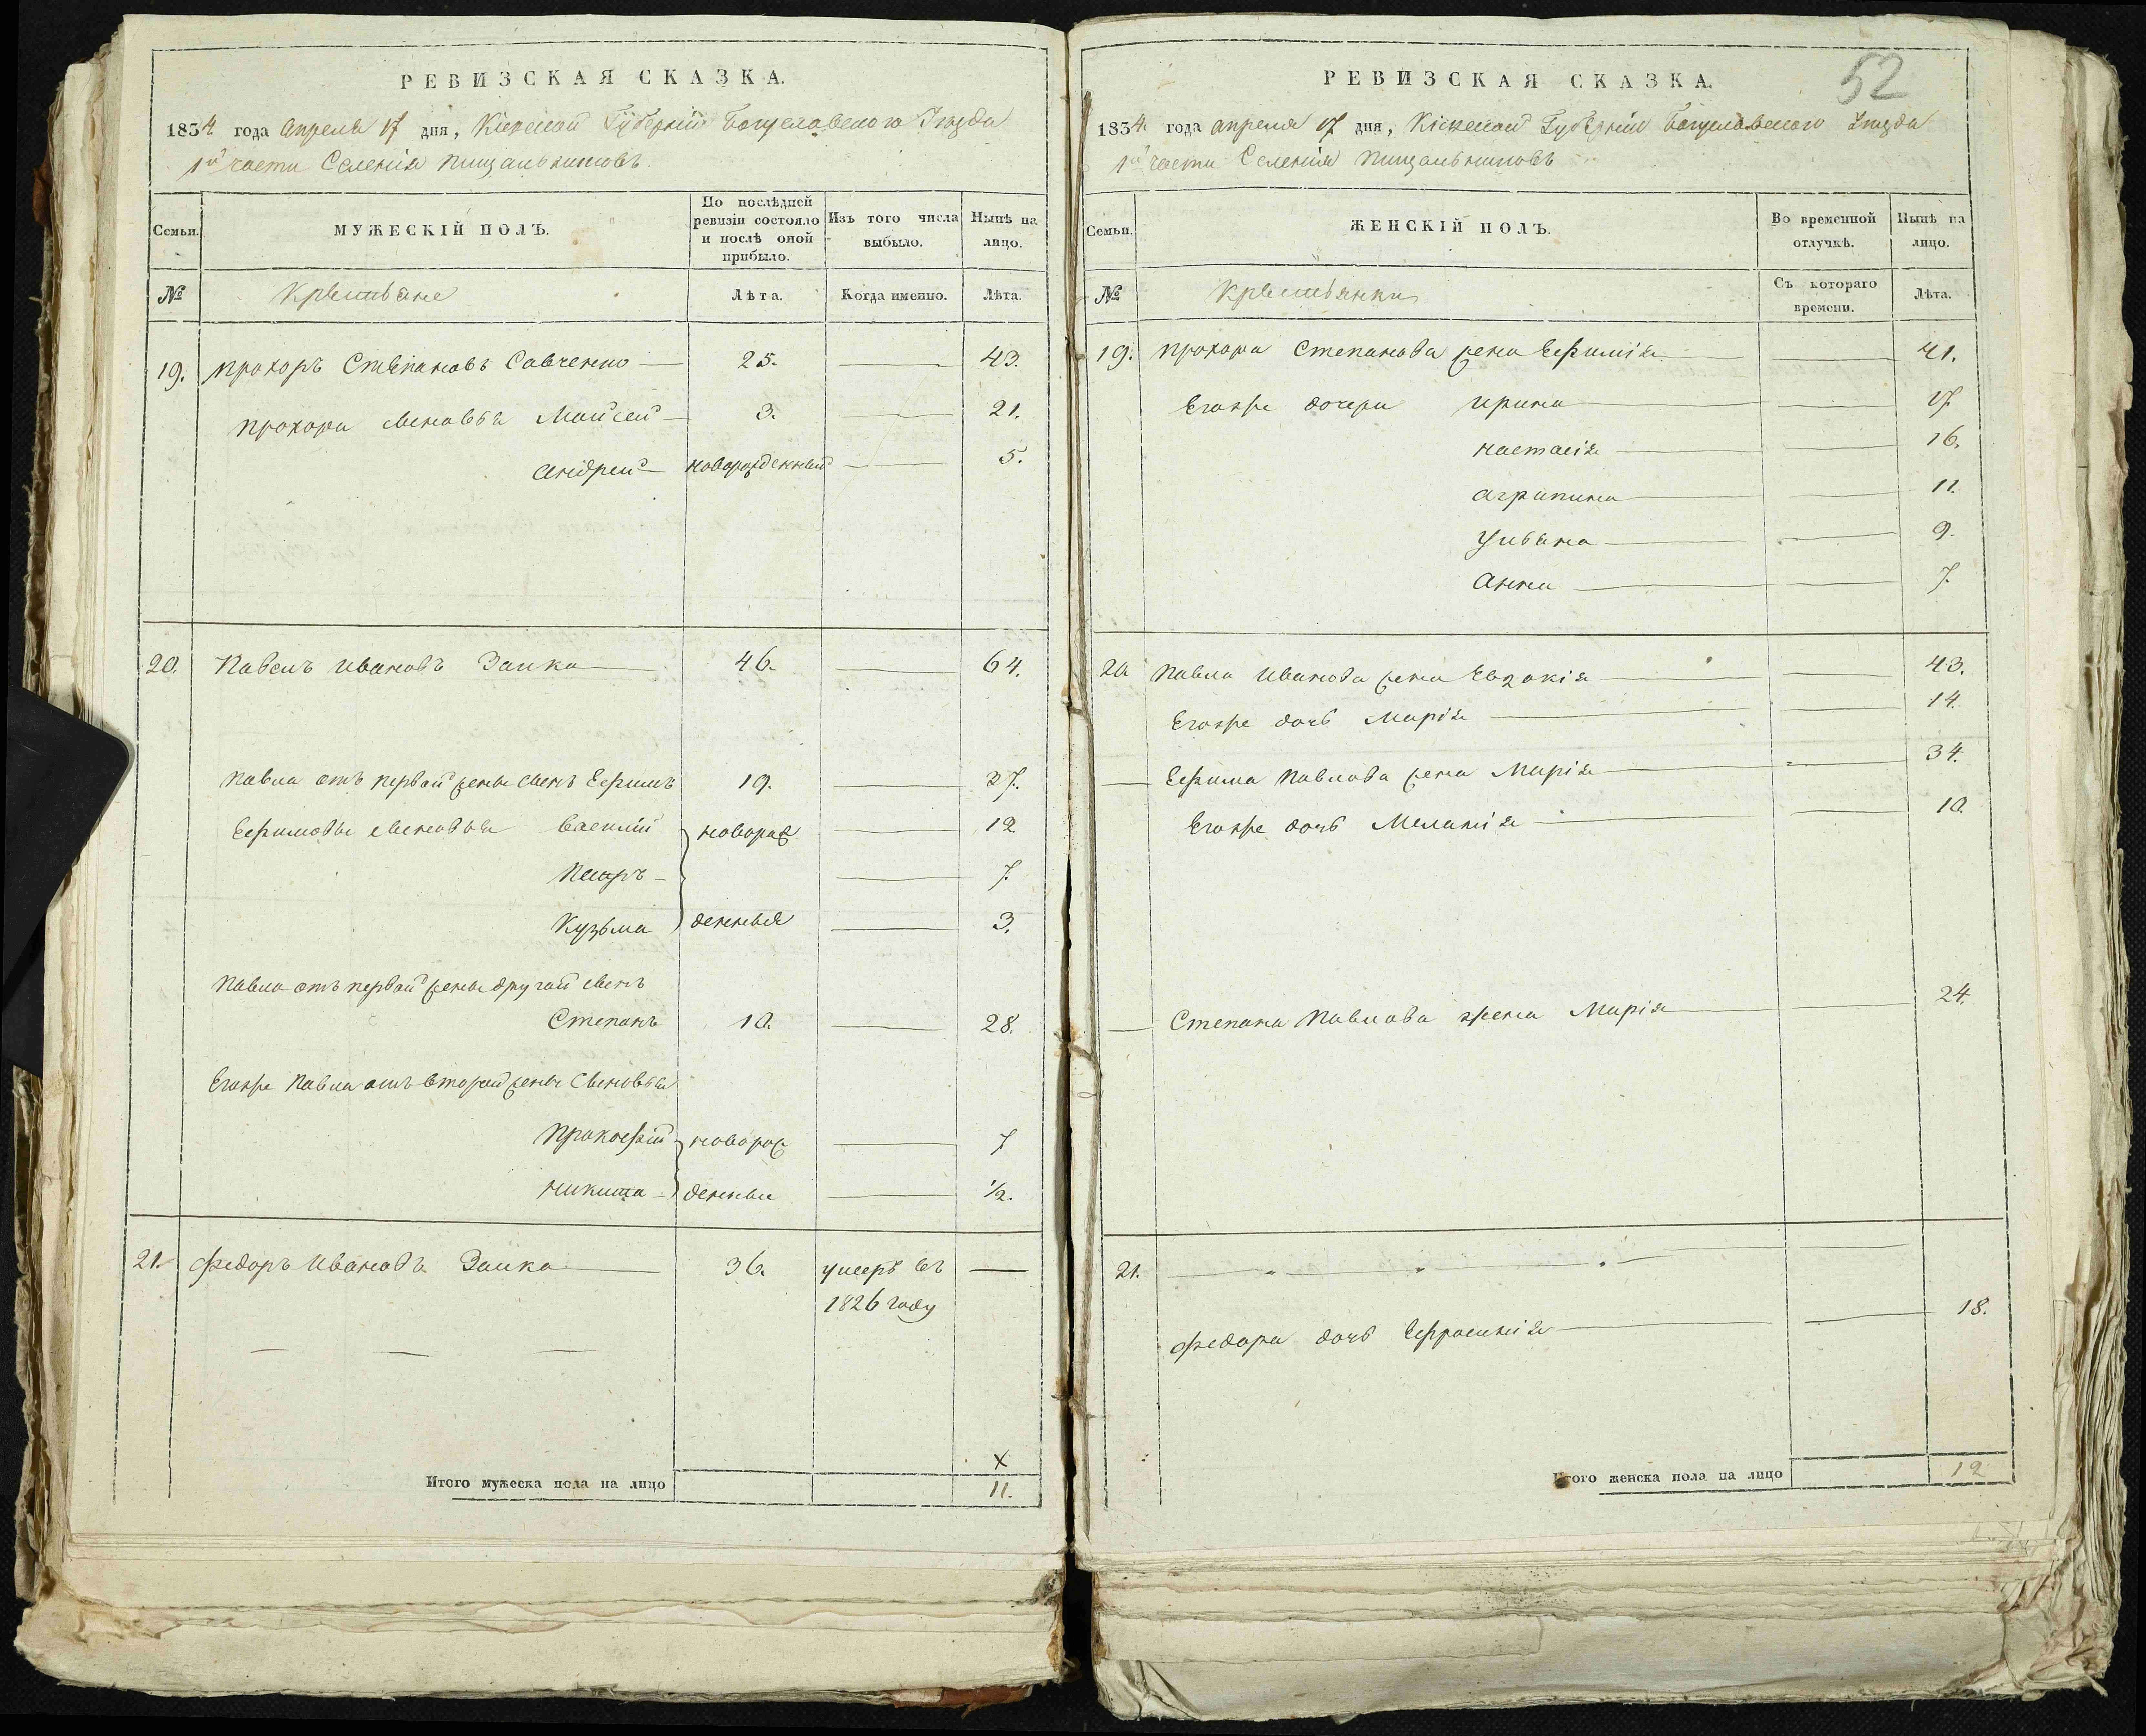 РЕВИЗСКАЯ СКАЗКА.
1834 года Апреля 17 дня, Кіевской Губерніи Богуславского Уезда
1й части Селенія Пищальниковъ
Семьи.
МУЖЕСКІЙ ПОЛЪ.
По послѣдней ревизіи состояло и послѣ оной прибыло.
Изъ того числа выбыло.
Нынѣ на лицо.
№
Крестьяне
Лѣта.
Когда именно.
Лѣта.
19. Прохоръ Степановъ Савченко 25. 43.
Прохора сыновья Мойсей 3. 21.
Андрей новорожденный 5.
20. Павелъ Ивановъ Заика 46. 64.
Павла отъ первой жены сынъ Ефимъ 19. 37.
Ефимовы сыновья Василій новорож 12
Петръ 7.
Кузьма денныя 3.
Павла отъ первой жены другой сынъ
Степанъ 10. 28.
Егожъ Павла отъ второй жены сыновья
Прокофій новорож 7
Никита денные 1/2.
21. Федоръ Ивановъ Заика 36. умеръ въ —
1826 году
X
Итого мужеска пола на лицо 11.
52
РЕВИЗСКАЯ СКАЗКА.
1834 года апреля 17 дня, Кіевской Губерніи Богуславского Уезда
1й части Селенія Пищальниковъ
Семьи.
ЖЕНСКІЙ ПОЛЪ.
Во временной отлучкѣ.
Нынѣ на лицо.
№
Крестьянки
Съ котораго времени.
Лѣта.
19. Прохора Степанова жена Ефимія 41.
Егоже дочери Ирина 17
Настасія 16.
Агрипина 11.
Ульяна 9.
Анна 7.
20 Павла Иванова жена Евдокія 43.
Егоже дочь Марія 14.
Ефима Павлова жена Марія 34.
Егоже дочь Меланія 10.
Степана Павлова жена Марія 24.
21.
Федора дочь Ефросинія 18.
Итого женска пола на лицо 12